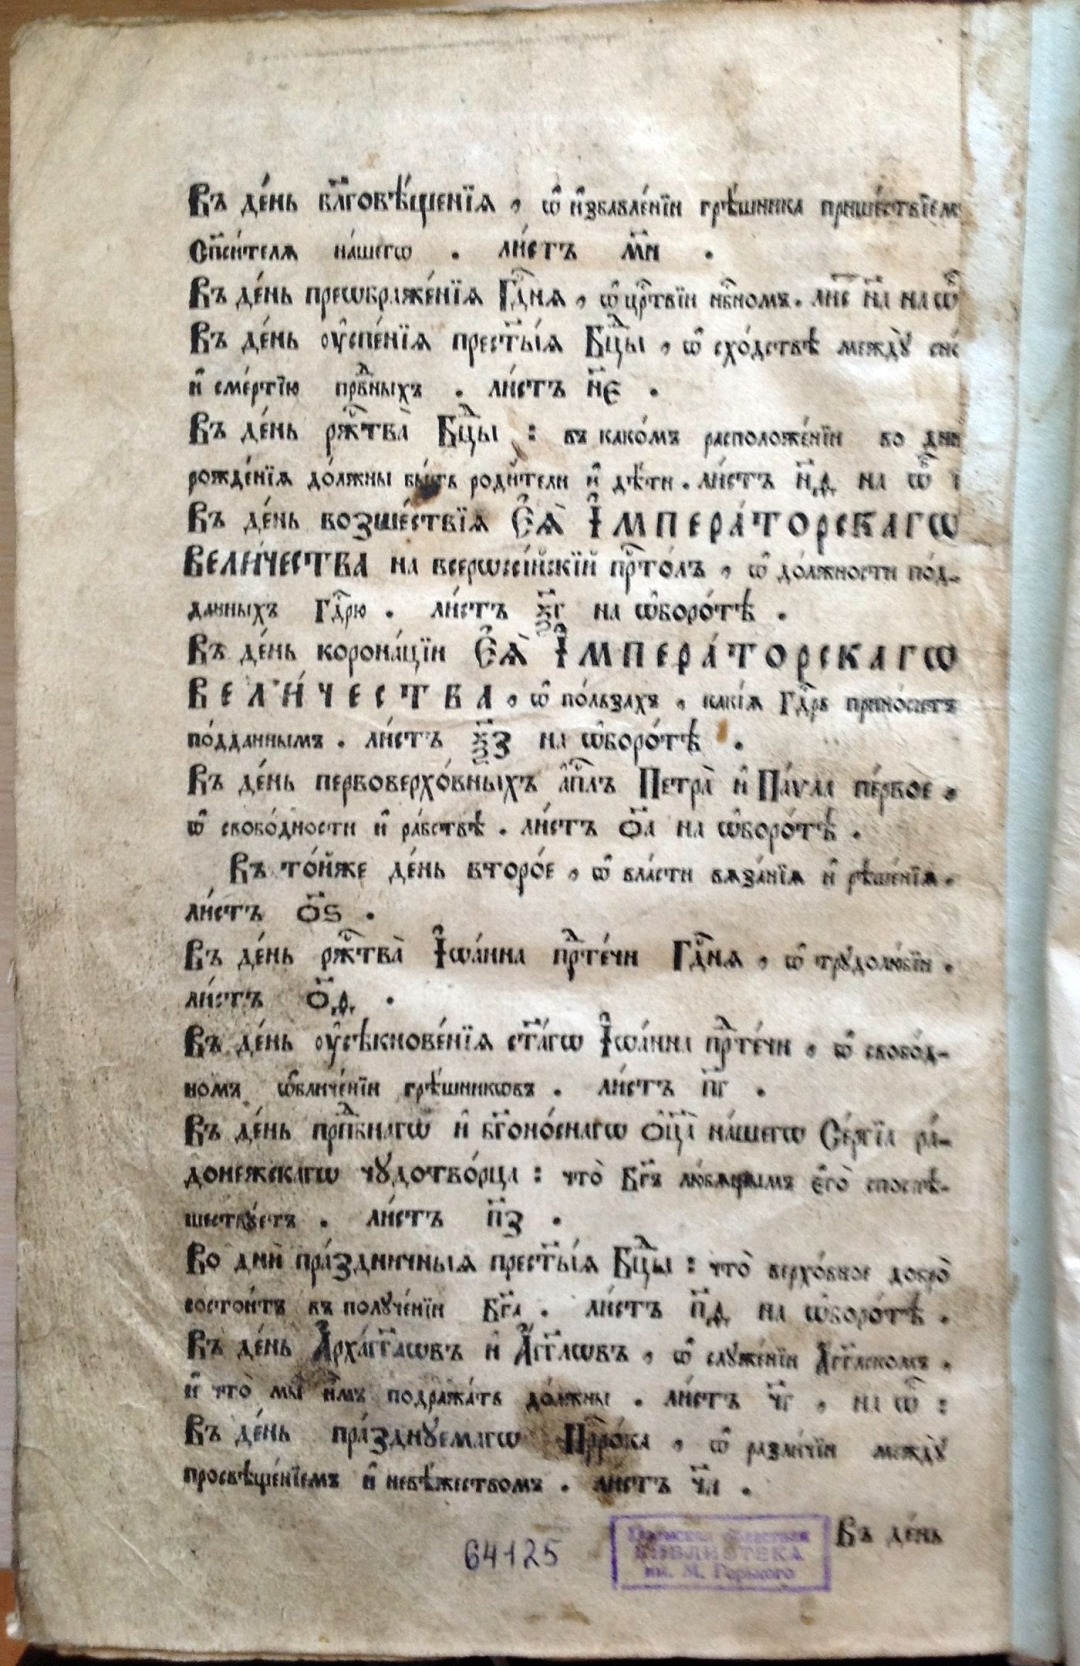 Въ де́нь бл҃говѣ́щенїѧ , ѡ҆ и҆збавле́нїи грѣ́шника прише́ствїемъ
Сп҃си́телѧ на́шегѡ . ли́стъ м҃и .
Въ де́нь преѡбраже́нїѧ Гдⷭ҇нѧ , ѡ҆ црⷭ҇твїи нбⷭ҇номъ . лиⷭ҇ н҃а на ѡ҆
Въ де́нь ᲂу҆спе́нїѧ прест҃ы́ѧ Бцⷣы , ѡ҆ схо́дствѣ междꙋ̀ сно́
и҆ сме́ртїю прⷣвныхъ . ли́стъ н҃є .
Въ де́нь ржⷭ҇тва̀ Бцⷣы : въ како́мъ расположе́нїи во днѝ
рожде́нїѧ до́лжны бы́ть роди́тели и҆ дѣ́ти . ли́стъ н҃ѳ на ѡ҆
Въ де́нь возше́ствїѧ Є҆ѧ̀ І҆мпера́торскагѡ
Вели́чества на всерѡссі́йскїй прⷭ҇то́лъ , ѡ҆ до́лжности по́д-
данныхъ Гдⷭ҇рю . ли́стъ ѯ҃г на ѡ҆боро́тѣ .
Въ де́нь корона́цїи Є҆ѧ̀ І҆мпера́торскагѡ
Вели́чества , ѡ҆ по́льзахъ , какі́ѧ Гдⷭ҇рь прино́ситъ
по́дданнымъ . ли́стъ ѯ҃з на ѡ҆боро́тѣ .
Въ де́нь первоверхо́вныхъ а҆пⷭ҇лъ Петра̀ и҆ Па́ѵла пе́рвое ,
ѡ҆ свобо́дности и҆ ра́бствѣ . ли́стъ ѻ҃а на ѡ҆боро́тѣ .
Въ то́йже де́нь второ́е , ѡ҆ вла́сти вѧза́нїѧ и҆ рѣше́нїѧ .
ли́стъ ѻ҃ѕ .
Въ де́нь ржⷭ҇тва̀ І҆ѡа́нна прⷣте́чи Гдⷭ҇нѧ , ѡ҆ трꙋдолю́бїи .
ли́стъ ѻ҃ѳ .
Въ де́нь ᲂу҆сѣкнове́нїѧ ст҃а́гѡ І҆ѡа́нна прⷣте́чи , ѡ҆ свобо́д-
номъ ѡ҆бличе́нїи грѣ́шникѡвъ . ли́стъ п҃г .
Въ де́нь прпⷣбнагѡ и҆ бг҃оно́снагѡ ѻ҆ц҃а̀ на́шегѡ Се́ргїа ра́-
донежскагѡ чꙋдотво́рца : что̀ Бг҃ъ лю́бѧщымъ є҆го̀ споспѣ́-
шествꙋетъ . ли́стъ п҃з .
Во днѝ пра́здничныѧ прест҃ы́ѧ Бцⷣы : что̀ верхо́вное добро̀
состои́тъ въ полꙋче́нїи Бг҃а . ли́стъ п҃ѳ на ѡ҆боро́тѣ .
Въ де́нь А҆рха́гг҃лѡвъ и҆ А҆́гг҃лѡвъ , ѡ҆ слꙋже́нїи А҆́гг҃лскомъ ,
и҆ что̀ мы̀ и҆̀мъ подража́ть до́лжны . ли́стъ ч҃г , на ѡ҆ :
Въ де́нь пра́зднꙋемагѡ Прⷪ҇ро́ка , ѡ҆ разли́чїи междꙋ̀
просвѣще́нїемъ и҆ невѣ́жествомъ . ли́стъ
Въ де́нь
64125
областная
БИБЛИОТЕКА
им. М. Горького